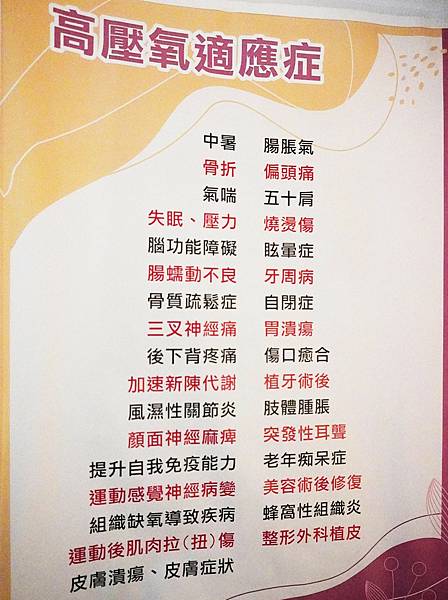 高壓氧適應症
中暑 腸脹氣
骨折 偏頭痛
氣喘 五十肩
失眠、壓力 燒燙傷
腦功能障礙 眩暈症
腸蠕動不良 牙周病
骨質疏鬆症 自閉症
三叉神經痛 胃潰瘍
後下背疼痛 傷口癒合
加速新陳代謝 植牙術後
風濕性關節炎 肢體腫脹
顏面神經麻痺 突發性耳聾
提升自我免疫能力 老年痴呆症
運動感覺神經病變 美容術後修復
組織缺氧導致疾病 蜂窩性組織炎
運動後肌肉拉(扭)傷 整形外科植皮
皮膚潰瘍、皮膚症狀